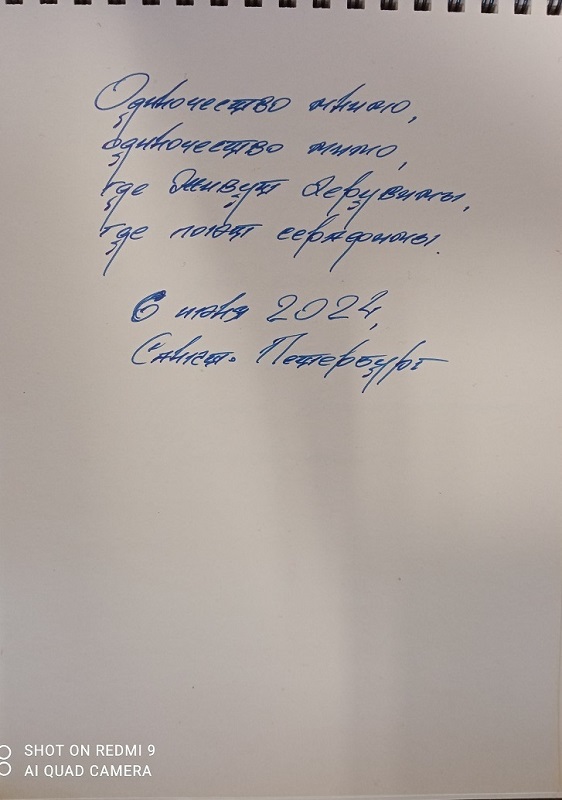 Одиночество мнимо,
одиночество мимо,
где живут Херувимы,
где поют серафимы.
6 июня 2024,
Санкт-Петербург
SHOT ON REDMI 9
AI QUAD CAMERA